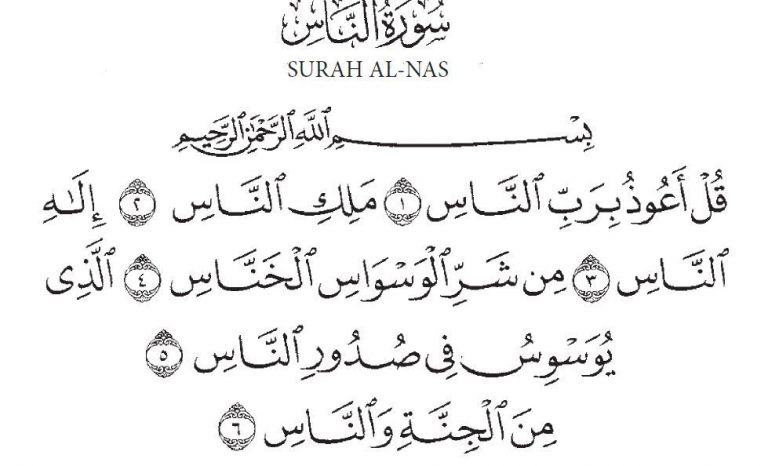 سُورَةُ النَّاسِ
SURAH AL-NAS
بِسْمِ ٱللَّهِ ٱلرَّحْمَٰنِ ٱلرَّحِيمِ
قُلْ أَعُوذُ بِرَبِّ ٱلنَّاسِ ١ مَلِكِ ٱلنَّاسِ ٢ إِلَٰهِ
ٱلنَّاسِ ٣ مِن شَرِّ ٱلْوَسْوَاسِ ٱلْخَنَّاسِ ٤ ٱلَّذِى
يُوَسْوِسُ فِى صُدُورِ ٱلنَّاسِ ٥
مِنَ ٱلْجِنَّةِ وَٱلنَّاسِ ٦